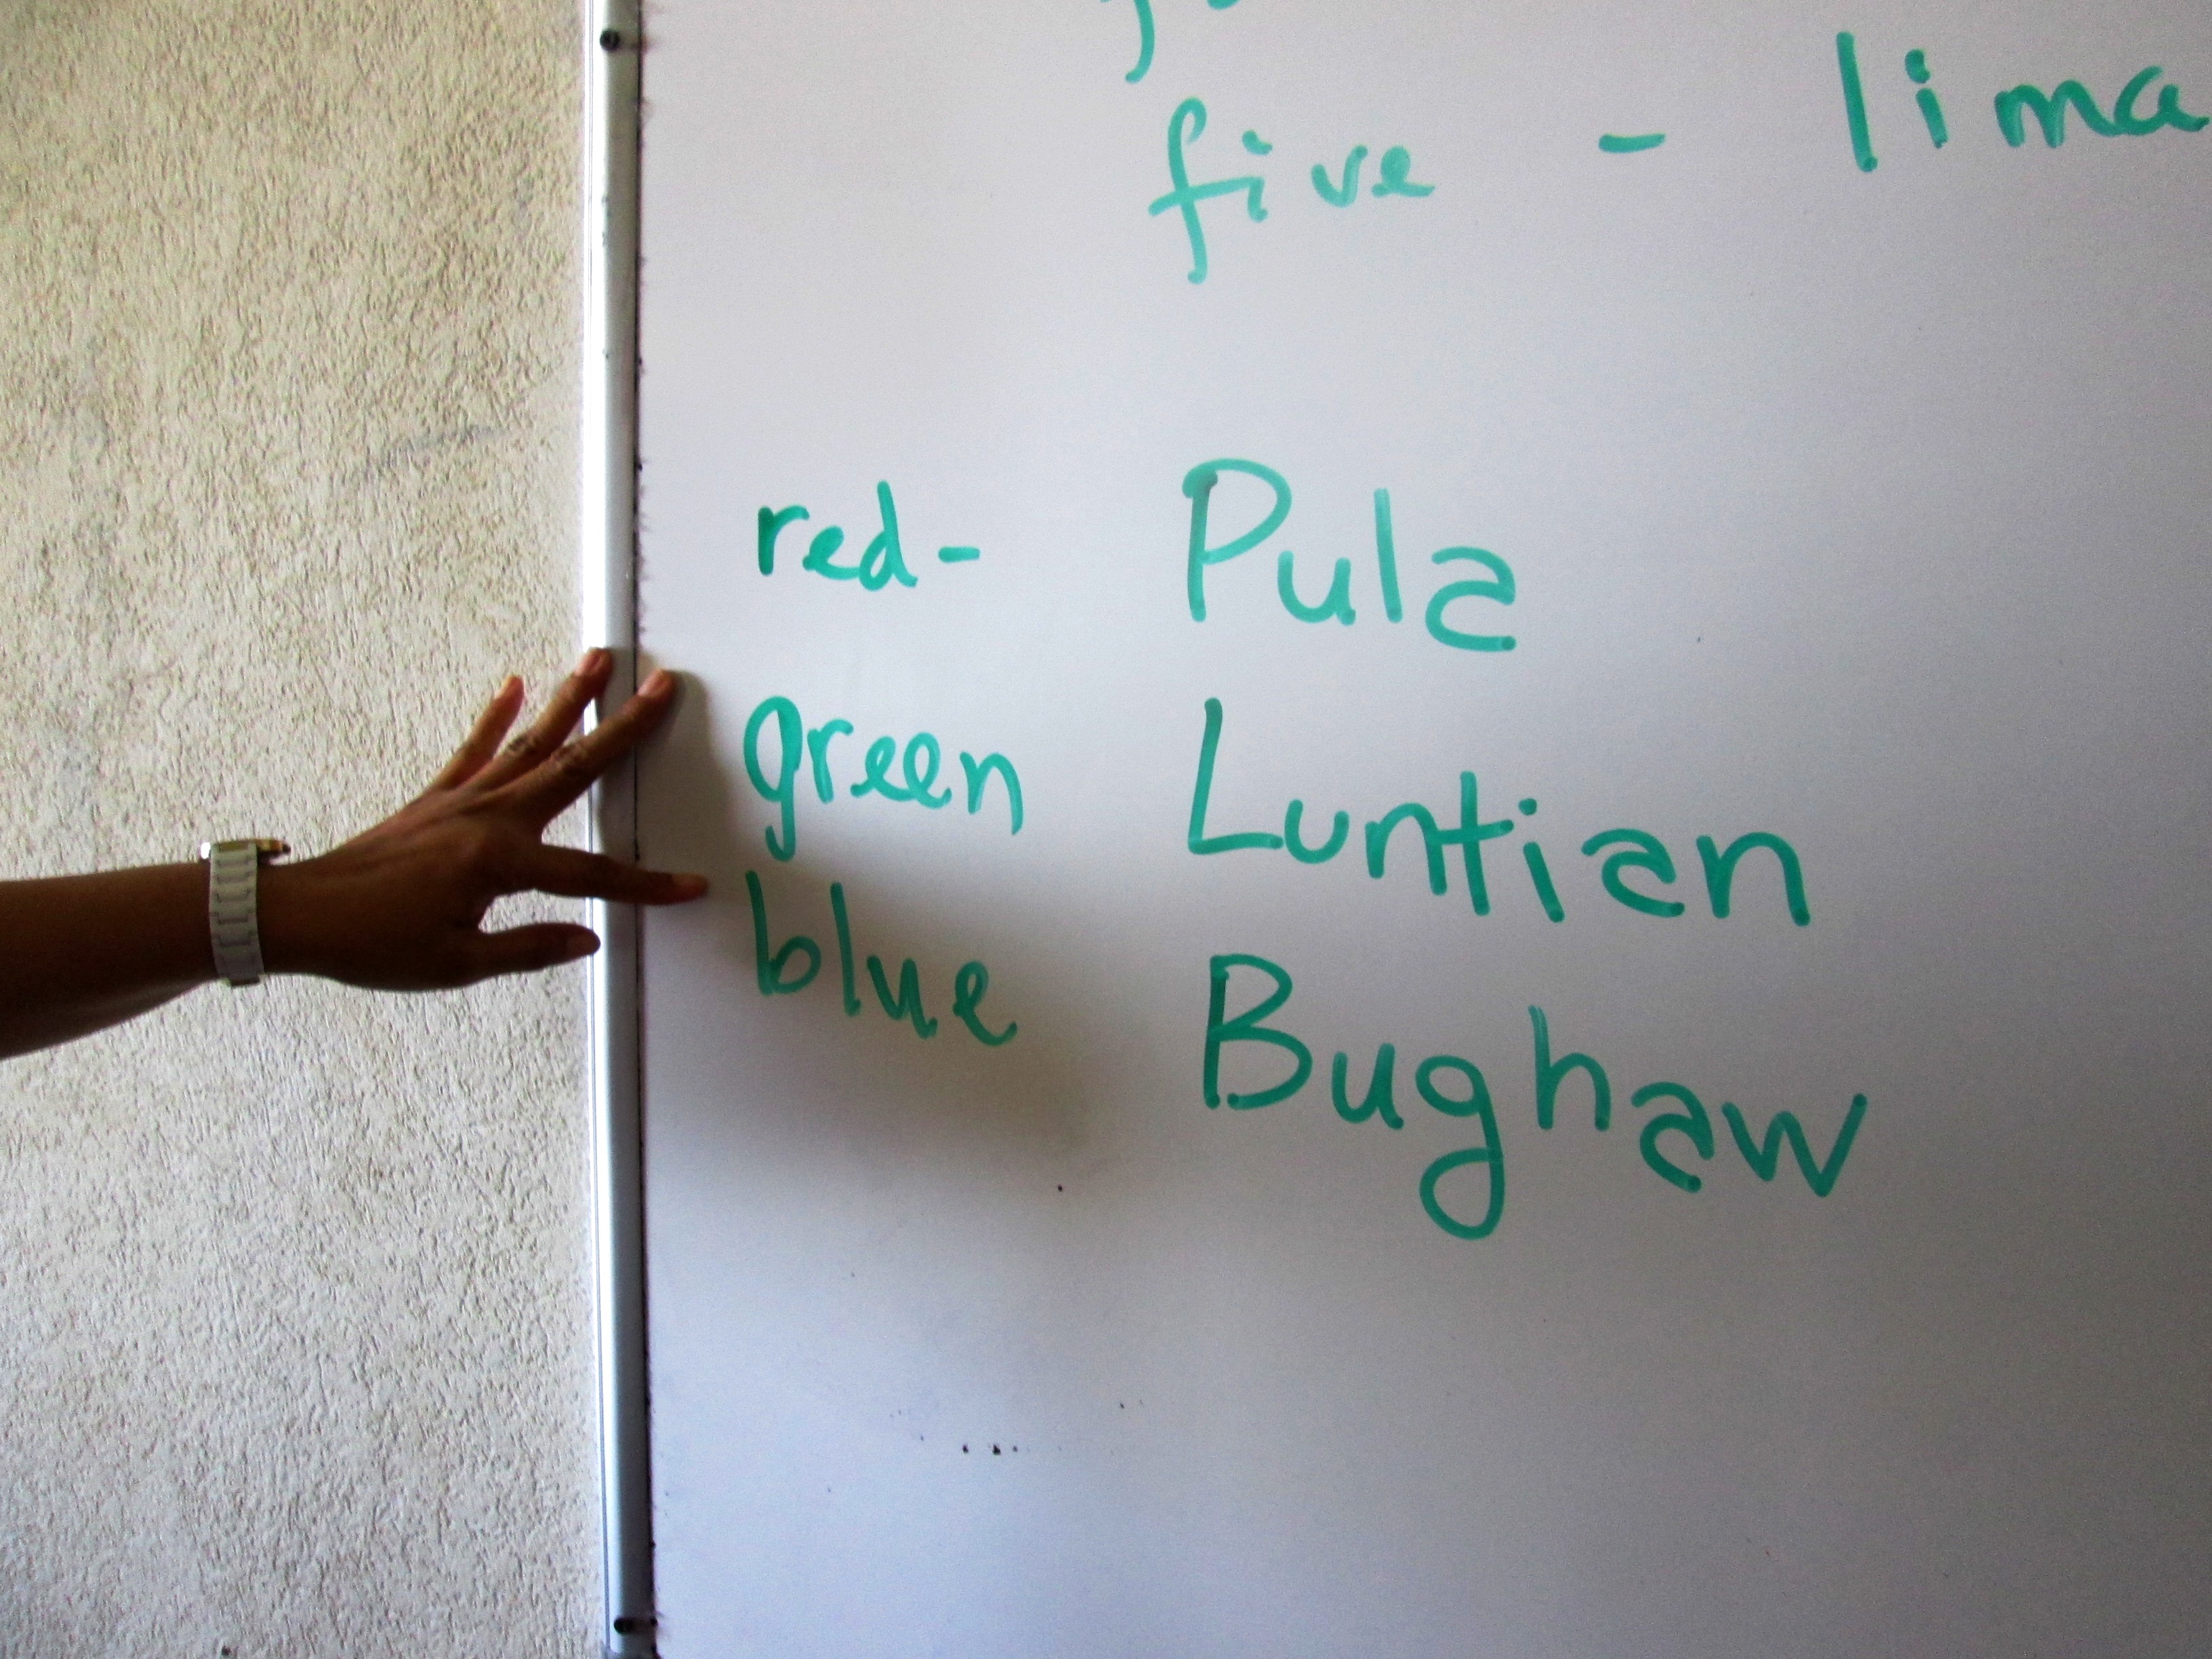 five - lima
red- Pula
green Luntian
blue Bughaw